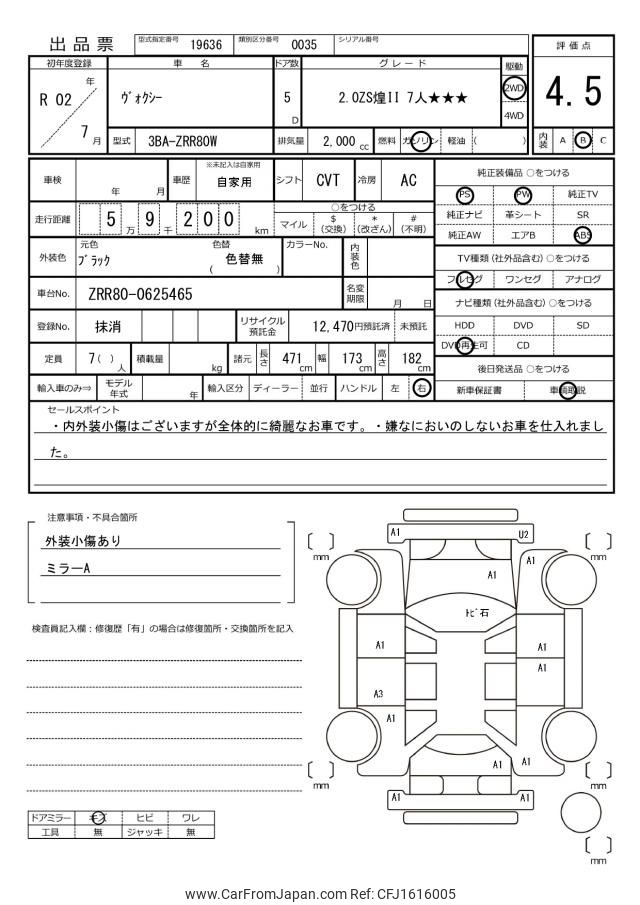 出品票
型式指定番号 19636 類別区分番号 0035 シリアル番号
評価点
4.5
内装 A B C
初年度登録 車名 ドア数 グレード 駆動
R 02 年 7 月
ヴォクシー 5 D 2.0ZS煌II 7人★★★ 2WD 4WD
型式 3BA-ZRR80W 排気量 2,000 cc 燃料 ガソリン 軽油 ( )
車検 年 月 車歴 ※未記入は自家用 自家用 シフト CVT 冷房 AC
走行距離 5 万 9 千 2 0 0 km
○をつける
マイル $(交換) *(改ざん) #(不明)
外装色 元色 ブラック 色替 ( 色替無 ) カラーNo. 内装色
車台No. ZRR80-0625465 名変期限 月 日
登録No. 抹消 リサイクル預託金 12,470円預託済 未預託
定員 7( )人 積載量 kg 諸元 長さ 471 cm 幅 173 cm 高さ 182 cm
輸入車のみ⇒ モデル年式 年 輸入区分 ディーラー 並行 ハンドル 左 右
純正装備品 ○をつける
PS PW 純正TV
純正ナビ 革シート SR
純正AW エアB ABS
TV種類(社外品含む) ○をつける
フルセグ ワンセグ アナログ
ナビ種類(社外品含む) ○をつける
HDD DVD SD
DVD再生可 CD
後日発送品 ○をつける
新車保証書 車輌取説
セールスポイント
・内外装小傷はございますが全体的に綺麗なお車です。・嫌なにおいのしないお車を仕入れまし
た。
注意事項・不具合箇所
外装小傷あり
ミラーA
検査員記入欄:修復歴「有」の場合は修復箇所・交換箇所を記入
ドアミラー キズ ヒビ ワレ
工具 無 ジャッキ 無
A1 U2
mm mm
A1
A1
トビ石
A1 A1
A1
A3
A1
A1 A1
mm mm
A1 A1
mm
www.CarFromJapan.com Ref: CFJ1616005